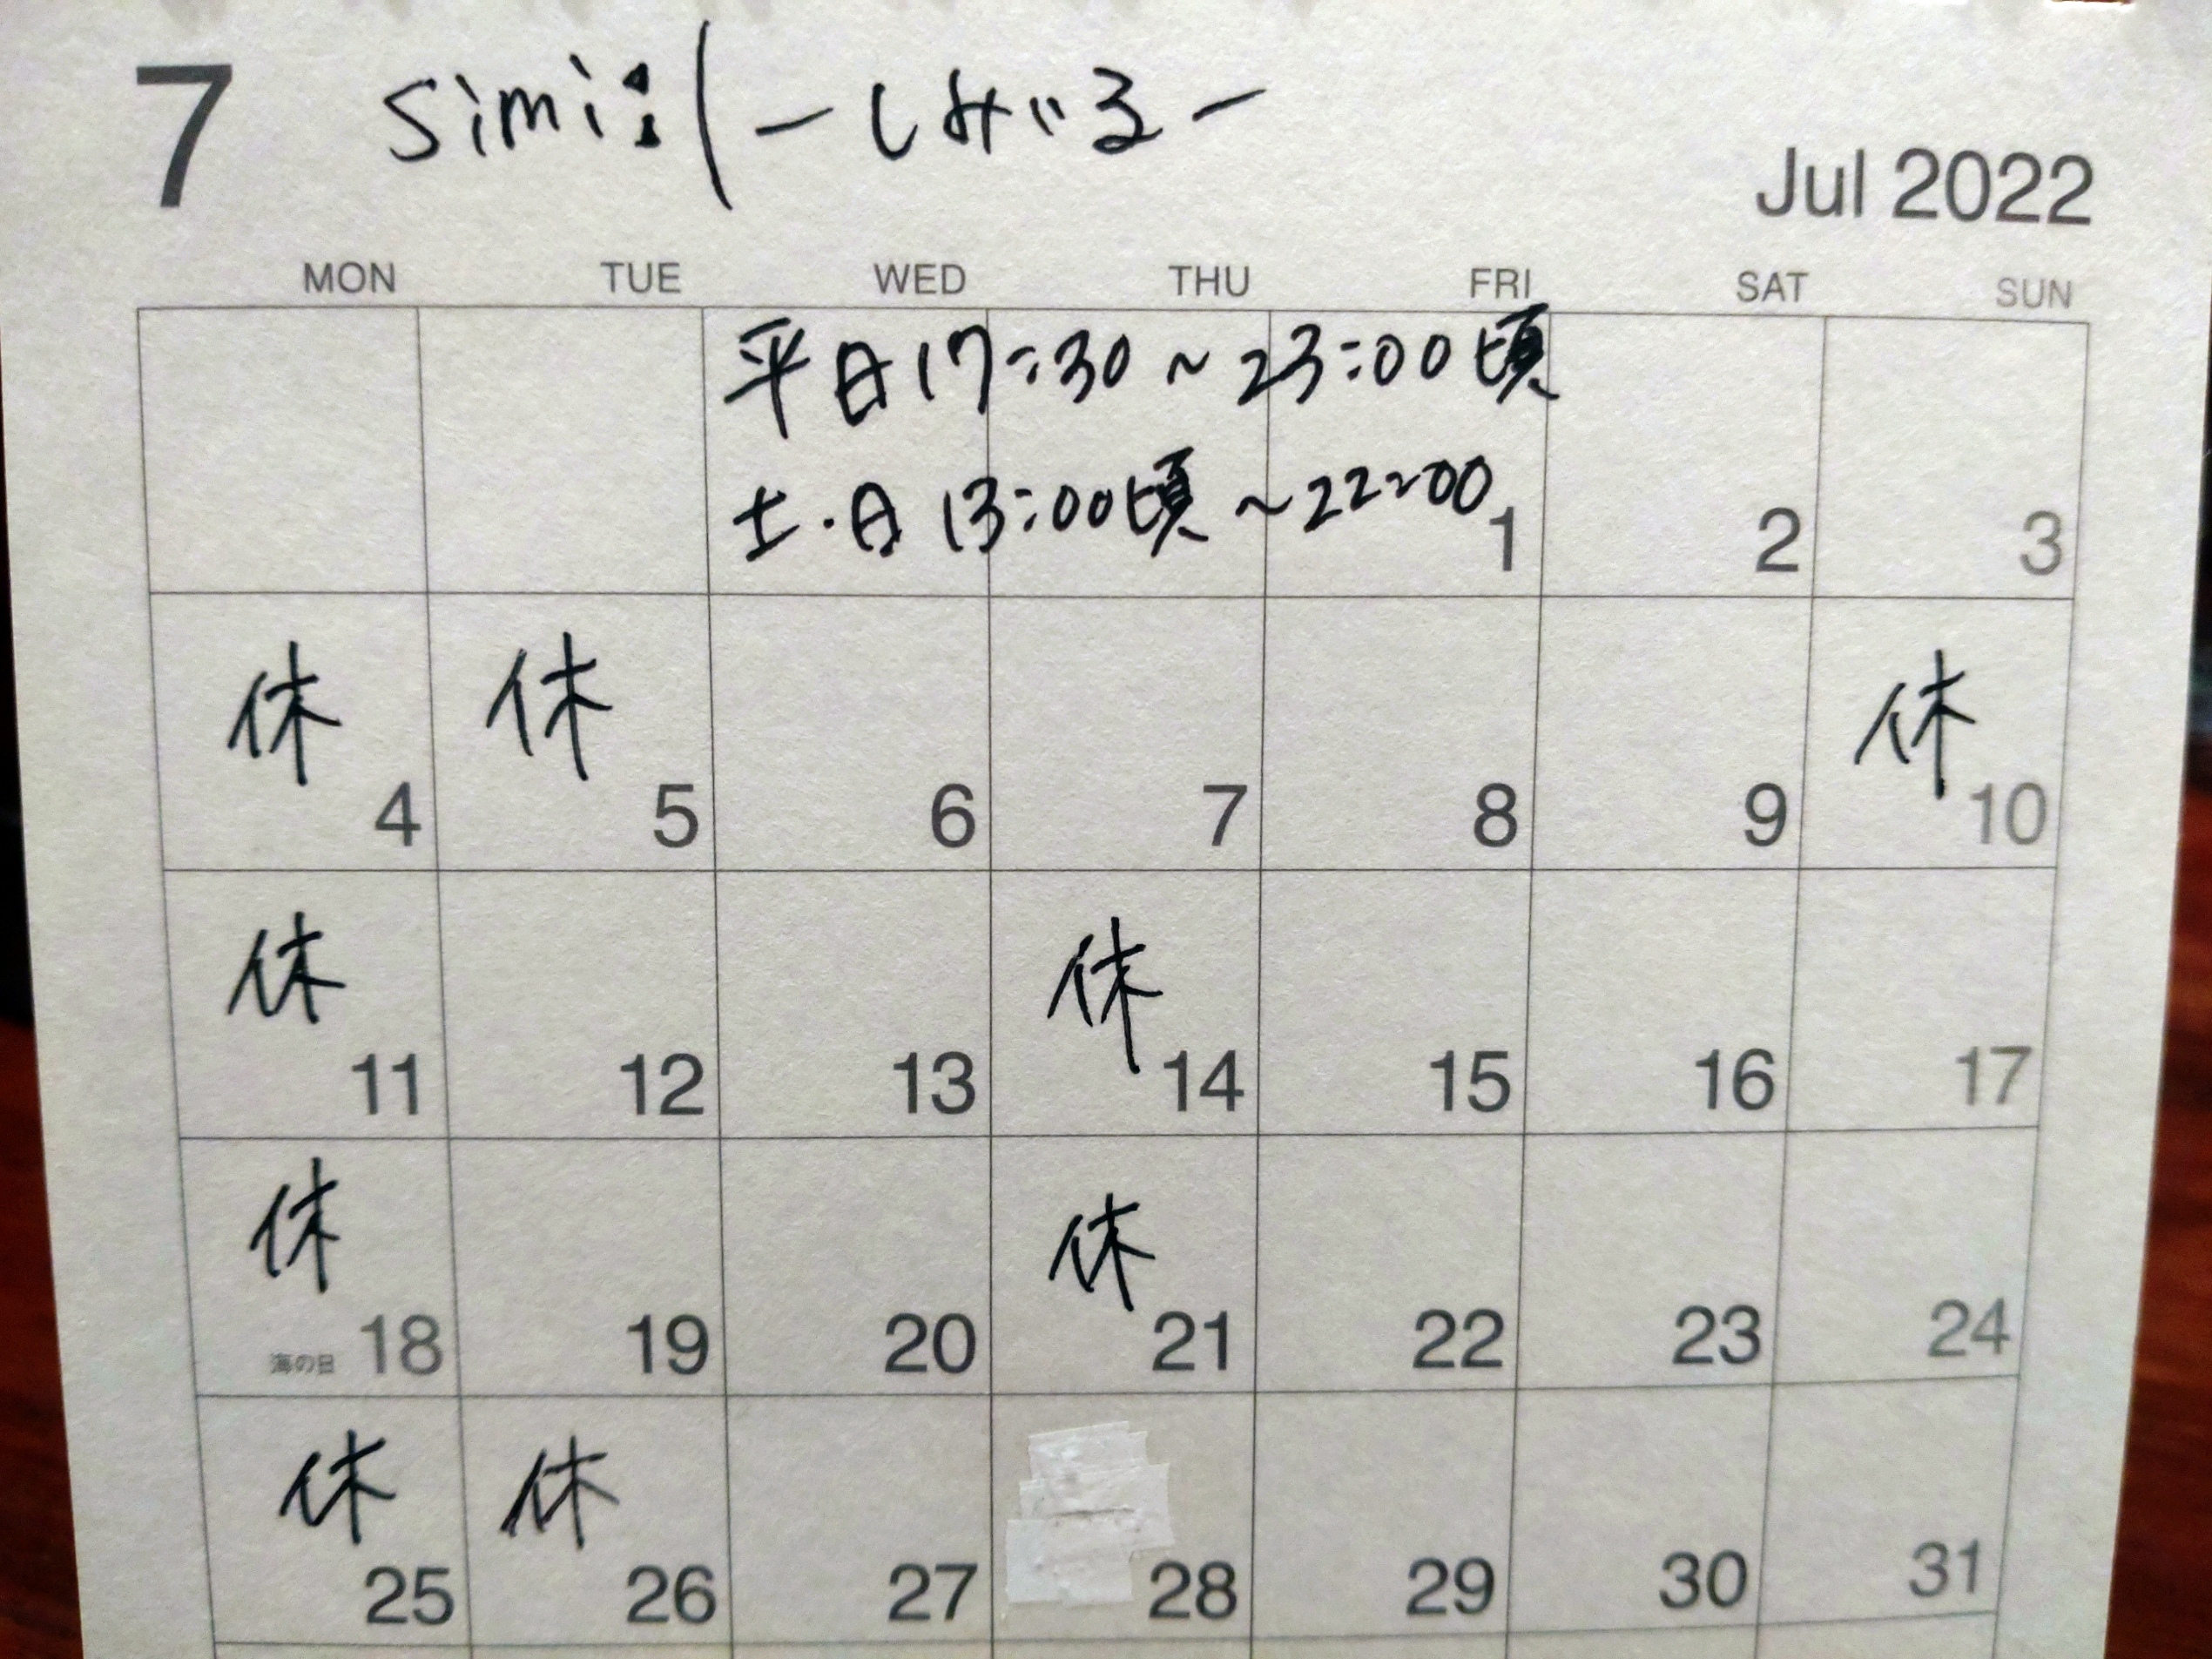 7 simi:l ーしみぃるー
Jul 2022
MON TUE WED THU FRI SAT SUN
平日17:30～23:00頃
土・日 13:00頃～22:00
1 2 3
休 休 休
4 5 6 7 8 9 10
休 休
11 12 13 14 15 16 17
休 休
海の日 18 19 20 21 22 23 24
休 休
25 26 27 28 29 30 31